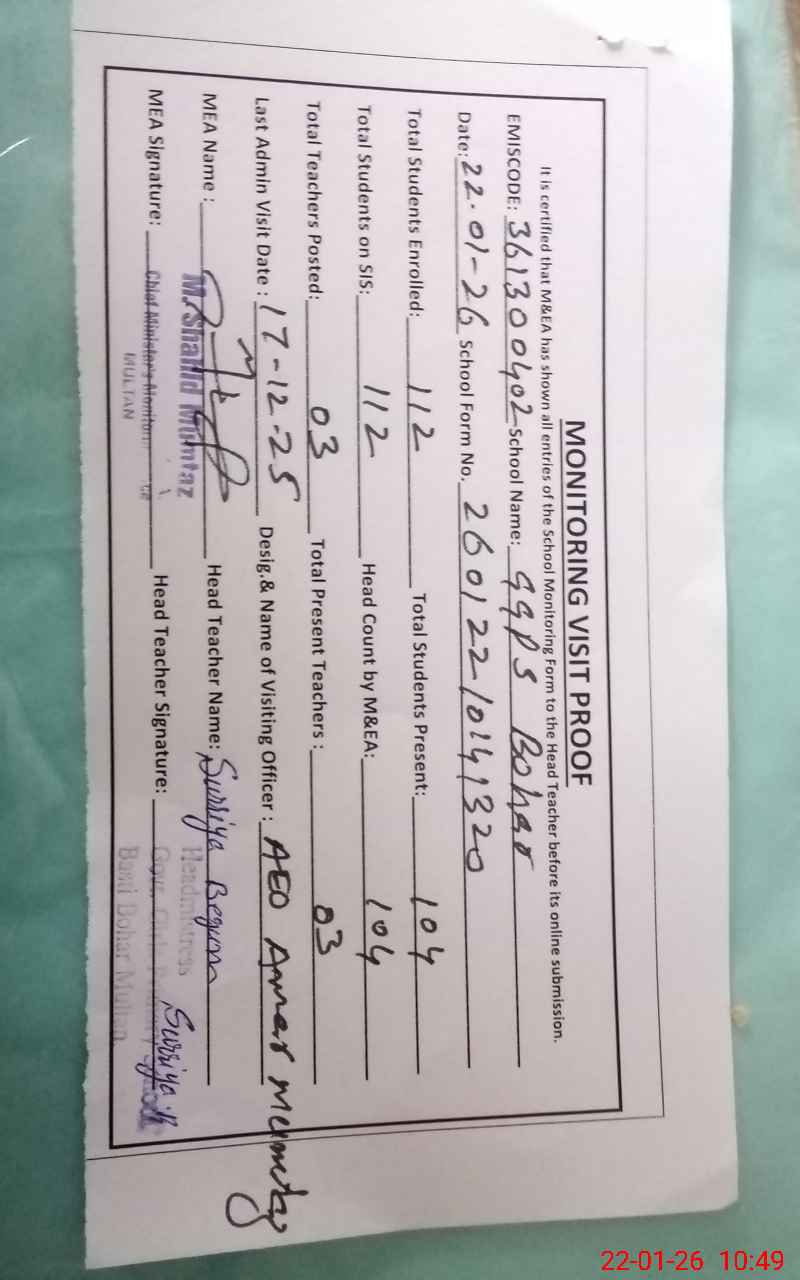 MONITORING VISIT PROOF
It is certified that M&EA has shown all entries of the School Monitoring Form to the Head Teacher before its online submission.
EMISCODE: 361300402 School Name: GGPS Bohar
Date: 22-01-26 School Form No. 26012210141320
Total Students Enrolled: 112 Total Students Present: 104
Total Students on SIS: 112 Head Count by M&EA: 104
Total Teachers Posted: 03 Total Present Teachers : 03
Last Admin Visit Date : 17-12-25 Desig.& Name of Visiting Officer : AEO Amer Mumtaz
MEA Name : Head Teacher Name: Surriya Begum
M. Shahid Mumtaz Headmistress
MEA Signature: Head Teacher Signature: Surriya.
Chief Minister's Monitoring Govt. Girls Primary School
MULTAN Basti Bohar Multan
22-01-26 10:49